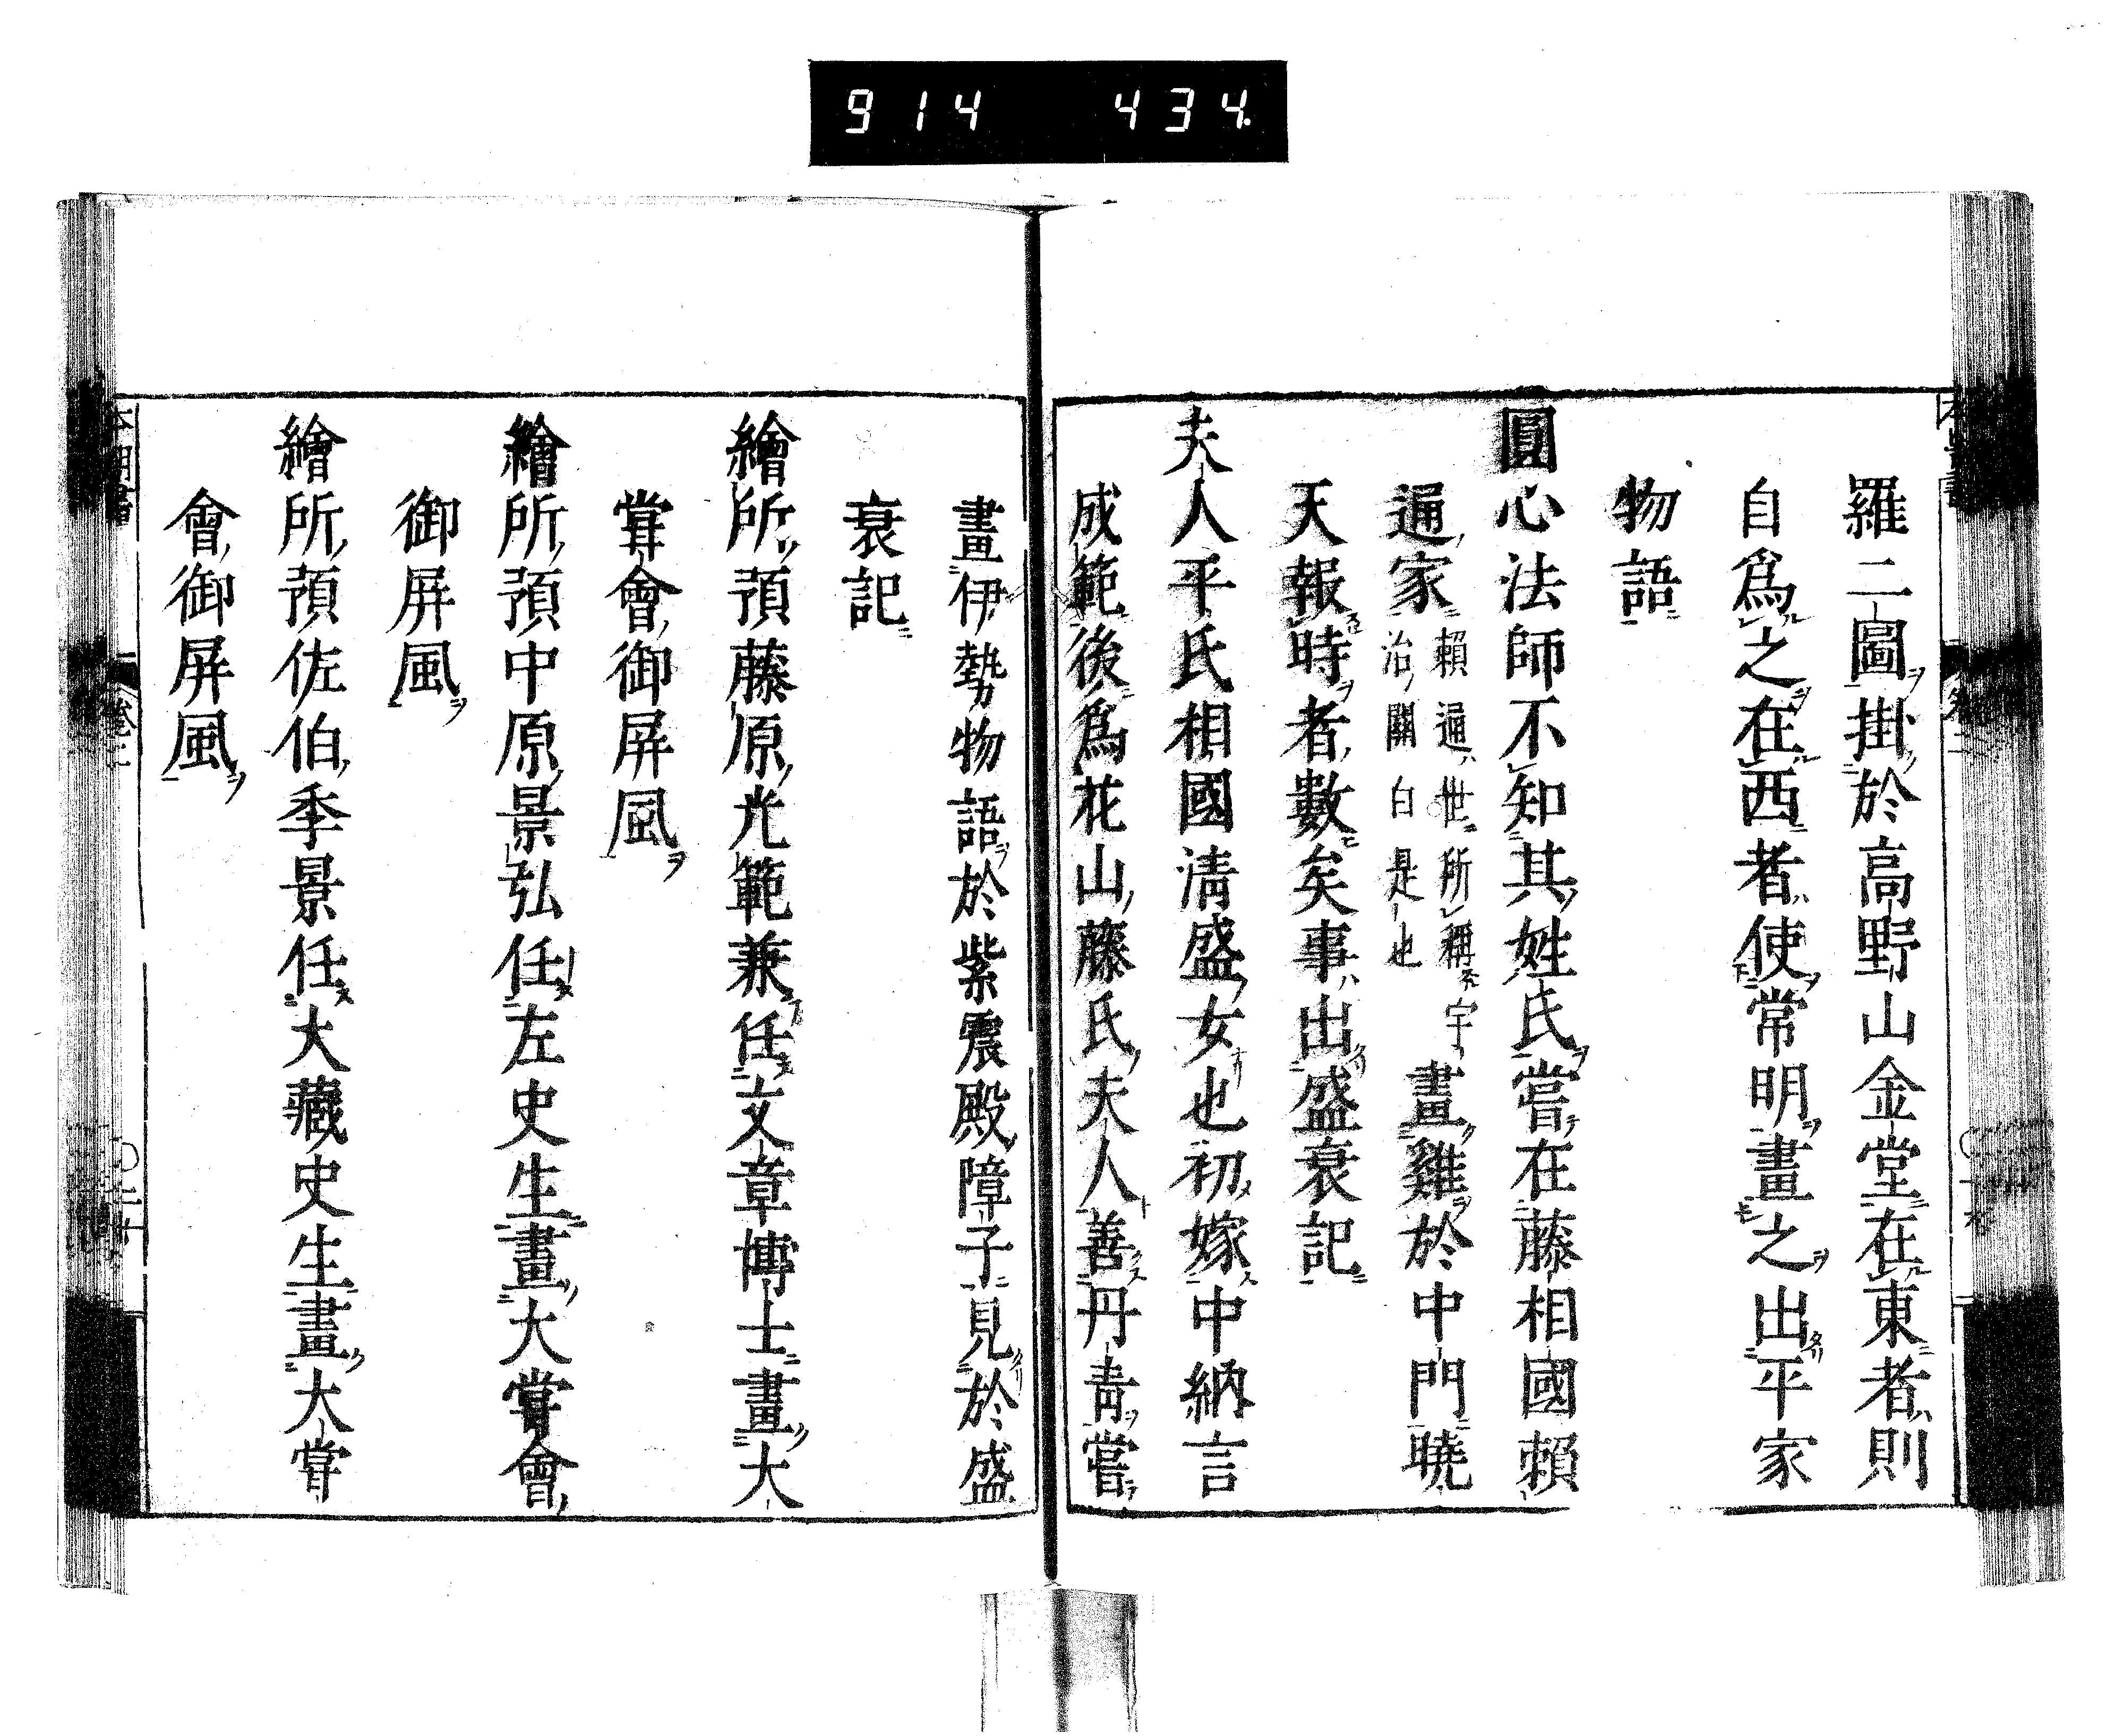 914 434
羅二圖掛於高野山金堂在東者則
自爲之在西者使常明畫之出平家
物語
圓心法師不知其姓氏嘗在藤相國賴
通家
賴通世所稱宇
治關白是也
畫雞於中門曉
天報時者數矣事出盛衰記
夫人平氏相國清盛女也初嫁中納言
成範後爲花山藤氏夫人善丹青嘗
畫伊勢物語於紫震殿障子見於盛
衰記
繪所預藤原光範兼任文章博士畫大
甞會御屏風
繪所預中原景弘任左史生畫大甞會
御屏風
繪所預佐伯季景任大藏史生畫大甞
會御屏風